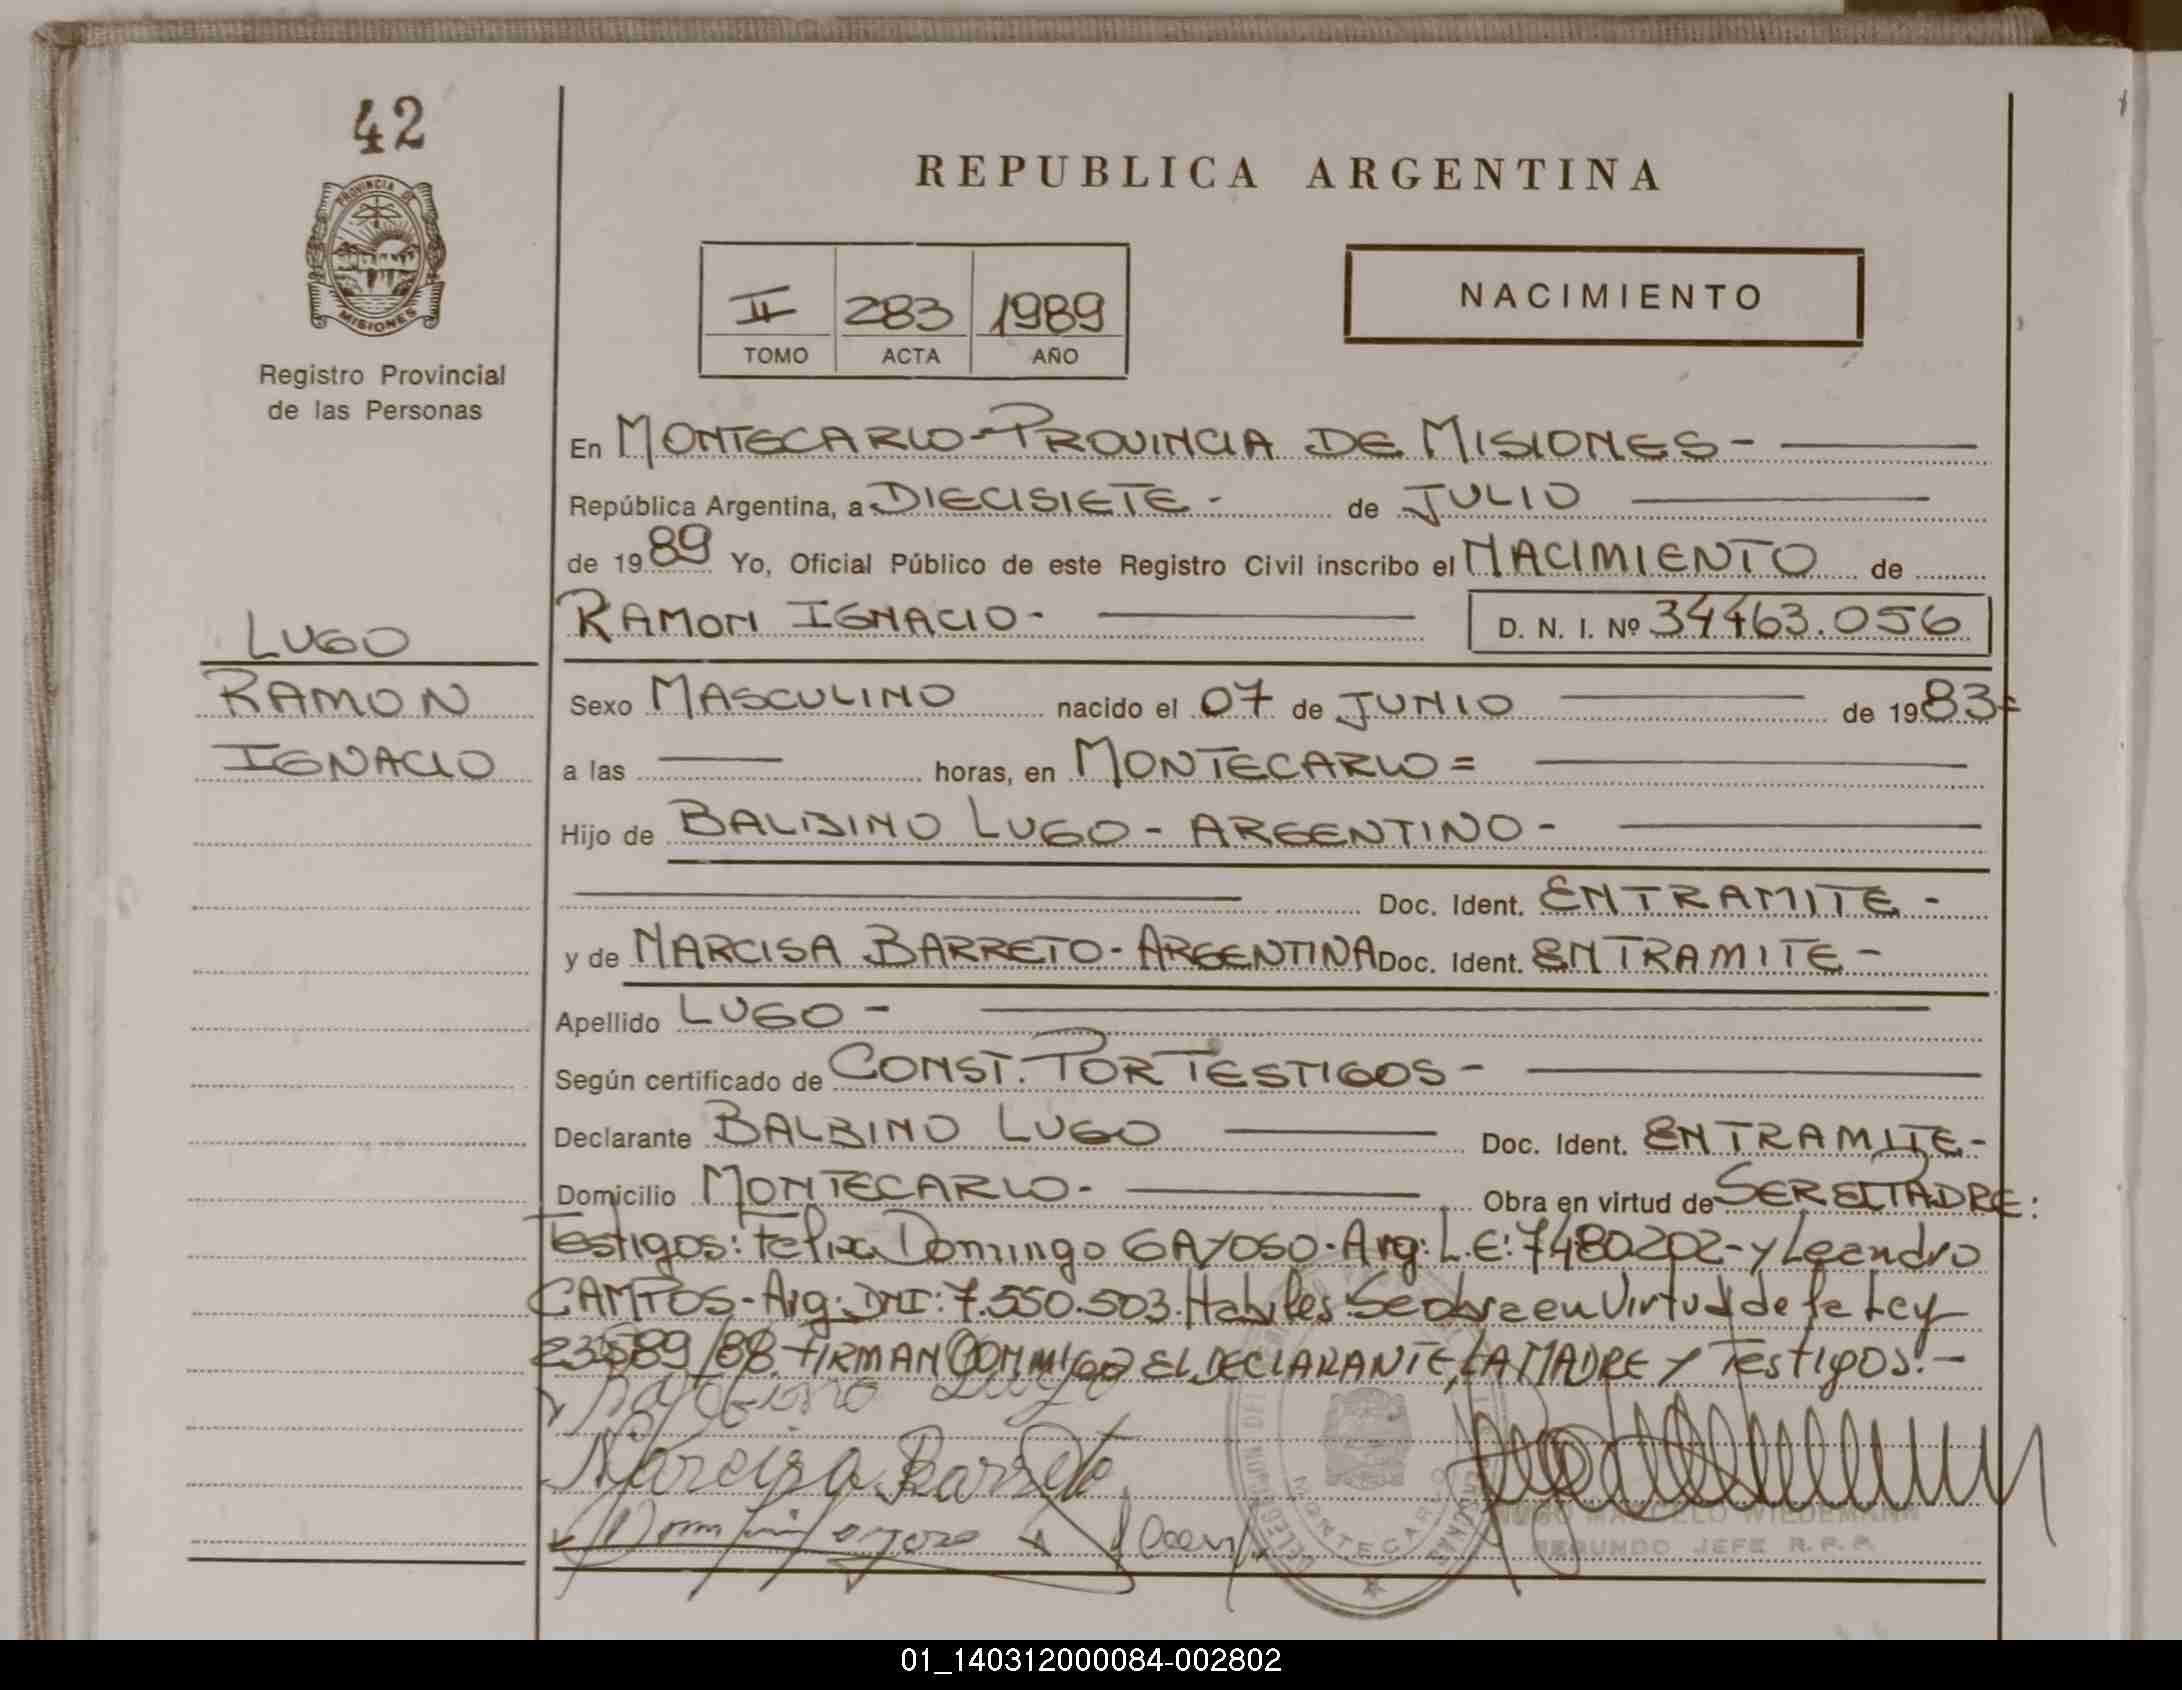 42
PROVINCIA DE
MISIONES
Registro Provincial
de las Personas
REPUBLICA ARGENTINA
II 283 1989
TOMO ACTA AÑO
NACIMIENTO
En MONTECARLO-PROVINCIA DE MISIONES-
República Argentina, a DIECISIETE- de JULIO
de 1989 Yo, Oficial Público de este Registro Civil inscribo el NACIMIENTO de
LUGO
RAMON
IGNACIO
RAMON IGNACIO- D. N. I. Nº 34463.056
Sexo MASCULINO nacido el 07 de JUNIO de 1983=
a las horas, en MONTECARLO=
Hijo de BALBINO LUGO- ARGENTINO-
Doc. Ident. EN TRAMITE-
y de NARCISA BARRETO-ARGENTINA Doc. Ident. EN TRAMITE-
Apellido LUGO-
Según certificado de CONST. POR TESTIGOS-
Declarante BALBINO LUGO Doc. Ident. EN TRAMITE-
Domicilio MONTECARLO- Obra en virtud de SER EL PADRE:
Testigos: Felix Domingo GAYOSO-Arg: L.E: 7480202-y Leandro
CAMPOS-Arg: DNI: 7.550.503.Habiles Se obra en Virtud de la Ley
23589/88 FIRMAN CONMIGO EL DECLARANTE, LA MADRE Y Testigos.-
Lugo
Narcisa Barreto
MONTECARLO
HUGO MARCELO WIEDEMANN
SEGUNDO JEFE R.P.P.
01_140312000084-002802